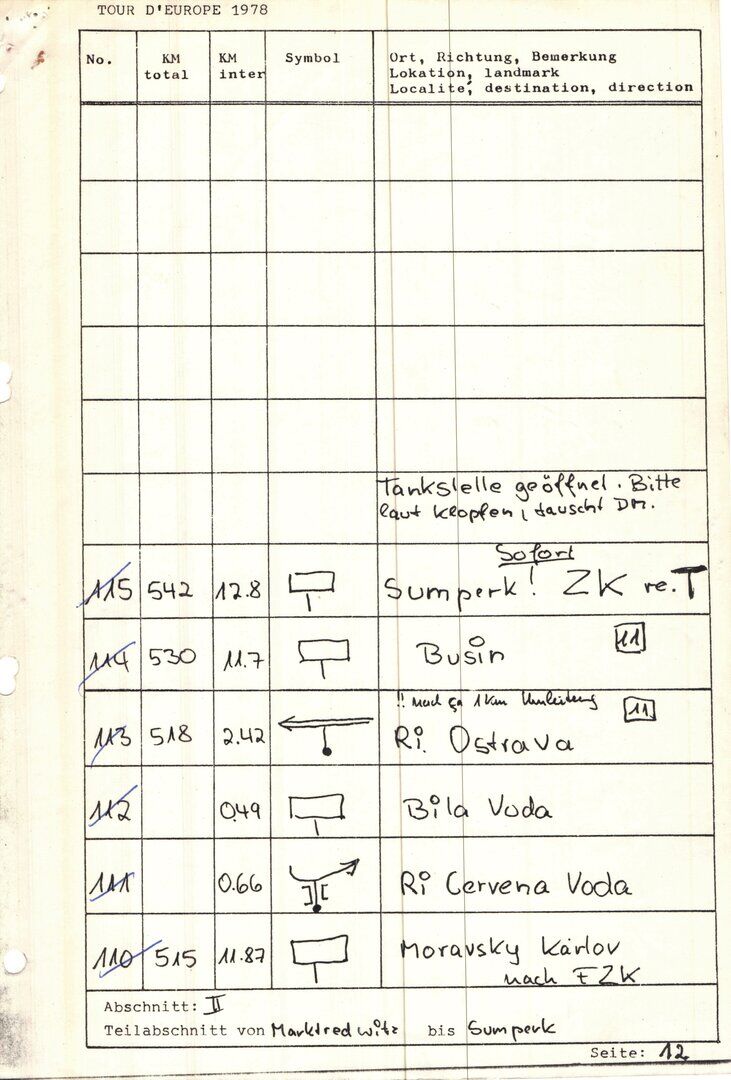 TOUR D'EUROPE 1978
No. KM total KM inter Symbol Ort, Richtung, Bemerkung
Lokation, landmark
Localite, destination, direction
Tankstelle geöffnet. Bitte
laut klopfen, tauscht DM.
Sofort
115 542 12.8 Sumperk! ZK re. T
114 530 11.7 Busin 11
!! nach ca 1km Umleitung 11
113 518 2.42 Ri. Ostrava
112 0.49 Bila Voda
111 0.66 Ri Cervena Voda
110 515 11.87 Moravsky Karlov
nach FZK
Abschnitt: II
Teilabschnitt von Marktredwitz bis Sumperk
Seite: 12